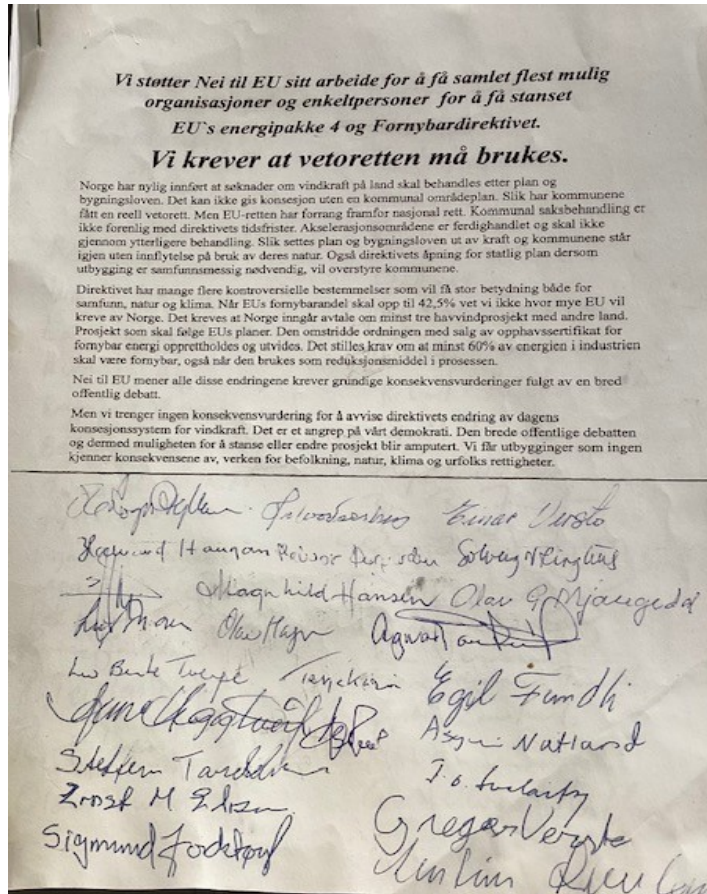 Vi støtter Nei til EU sitt arbeide for å få samlet flest mulig
organisasjoner og enkeltpersoner for å få stanset
EU`s energipakke 4 og Fornybardirektivet.
Vi krever at vetoretten må brukes.
Norge har nylig innført at søknader om vindkraft på land skal behandles etter plan og
bygningsloven. Det kan ikke gis konsesjon uten en kommunal områdeplan. Slik har kommunene
fått en reell vetorett. Men EU-retten har forrang framfor nasjonal rett. Kommunal saksbehandling er
ikke forenlig med direktivets tidsfrister. Akselerasjonsområdene er ferdighandlet og skal ikke
gjennom ytterligere behandling. Slik settes plan og bygningsloven ut av kraft og kommunene står
igjen uten innflytelse på bruk av deres natur. Også direktivets åpning for statlig plan dersom
utbygging er samfunnsmessig nødvendig, vil overstyre kommunene.
Direktivet har mange flere kontroversielle bestemmelser som vil få stor betydning både for
samfunn, natur og klima. Når EUs fornybarandel skal opp til 42,5% vet vi ikke hvor mye EU vil
kreve av Norge. Det kreves at Norge inngår avtale om minst tre havvindprosjekt med andre land.
Prosjekt som skal følge EUs planer. Den omstridde ordningen med salg av opphavssertifikat for
fornybar energi opprettholdes og utvides. Det stilles krav om at minst 60% av energien i industrien
skal være fornybar, også når den brukes som reduksjonsmiddel i prosessen.
Nei til EU mener alle disse endringene krever grundige konsekvensvurderinger fulgt av en bred
offentlig debatt.
Men vi trenger ingen konsekvensvurdering for å avvise direktivets endring av dagens
konsesjonssystem for vindkraft. Det er et angrep på vårt demokrati. Den brede offentlige debatten
og dermed muligheten for å stanse eller endre prosjekt blir amputert. Vi får utbygginger som ingen
kjenner konsekvensene av, verken for befolkning, natur, klima og urfolks rettigheter.
Einar Versto
Haugan Solveig
Magnhild Hansen Olav G Mjaugedal
Olav
Bente Egil
Natland
Steffen
Ernst M
Gregar Versto
Sigmund